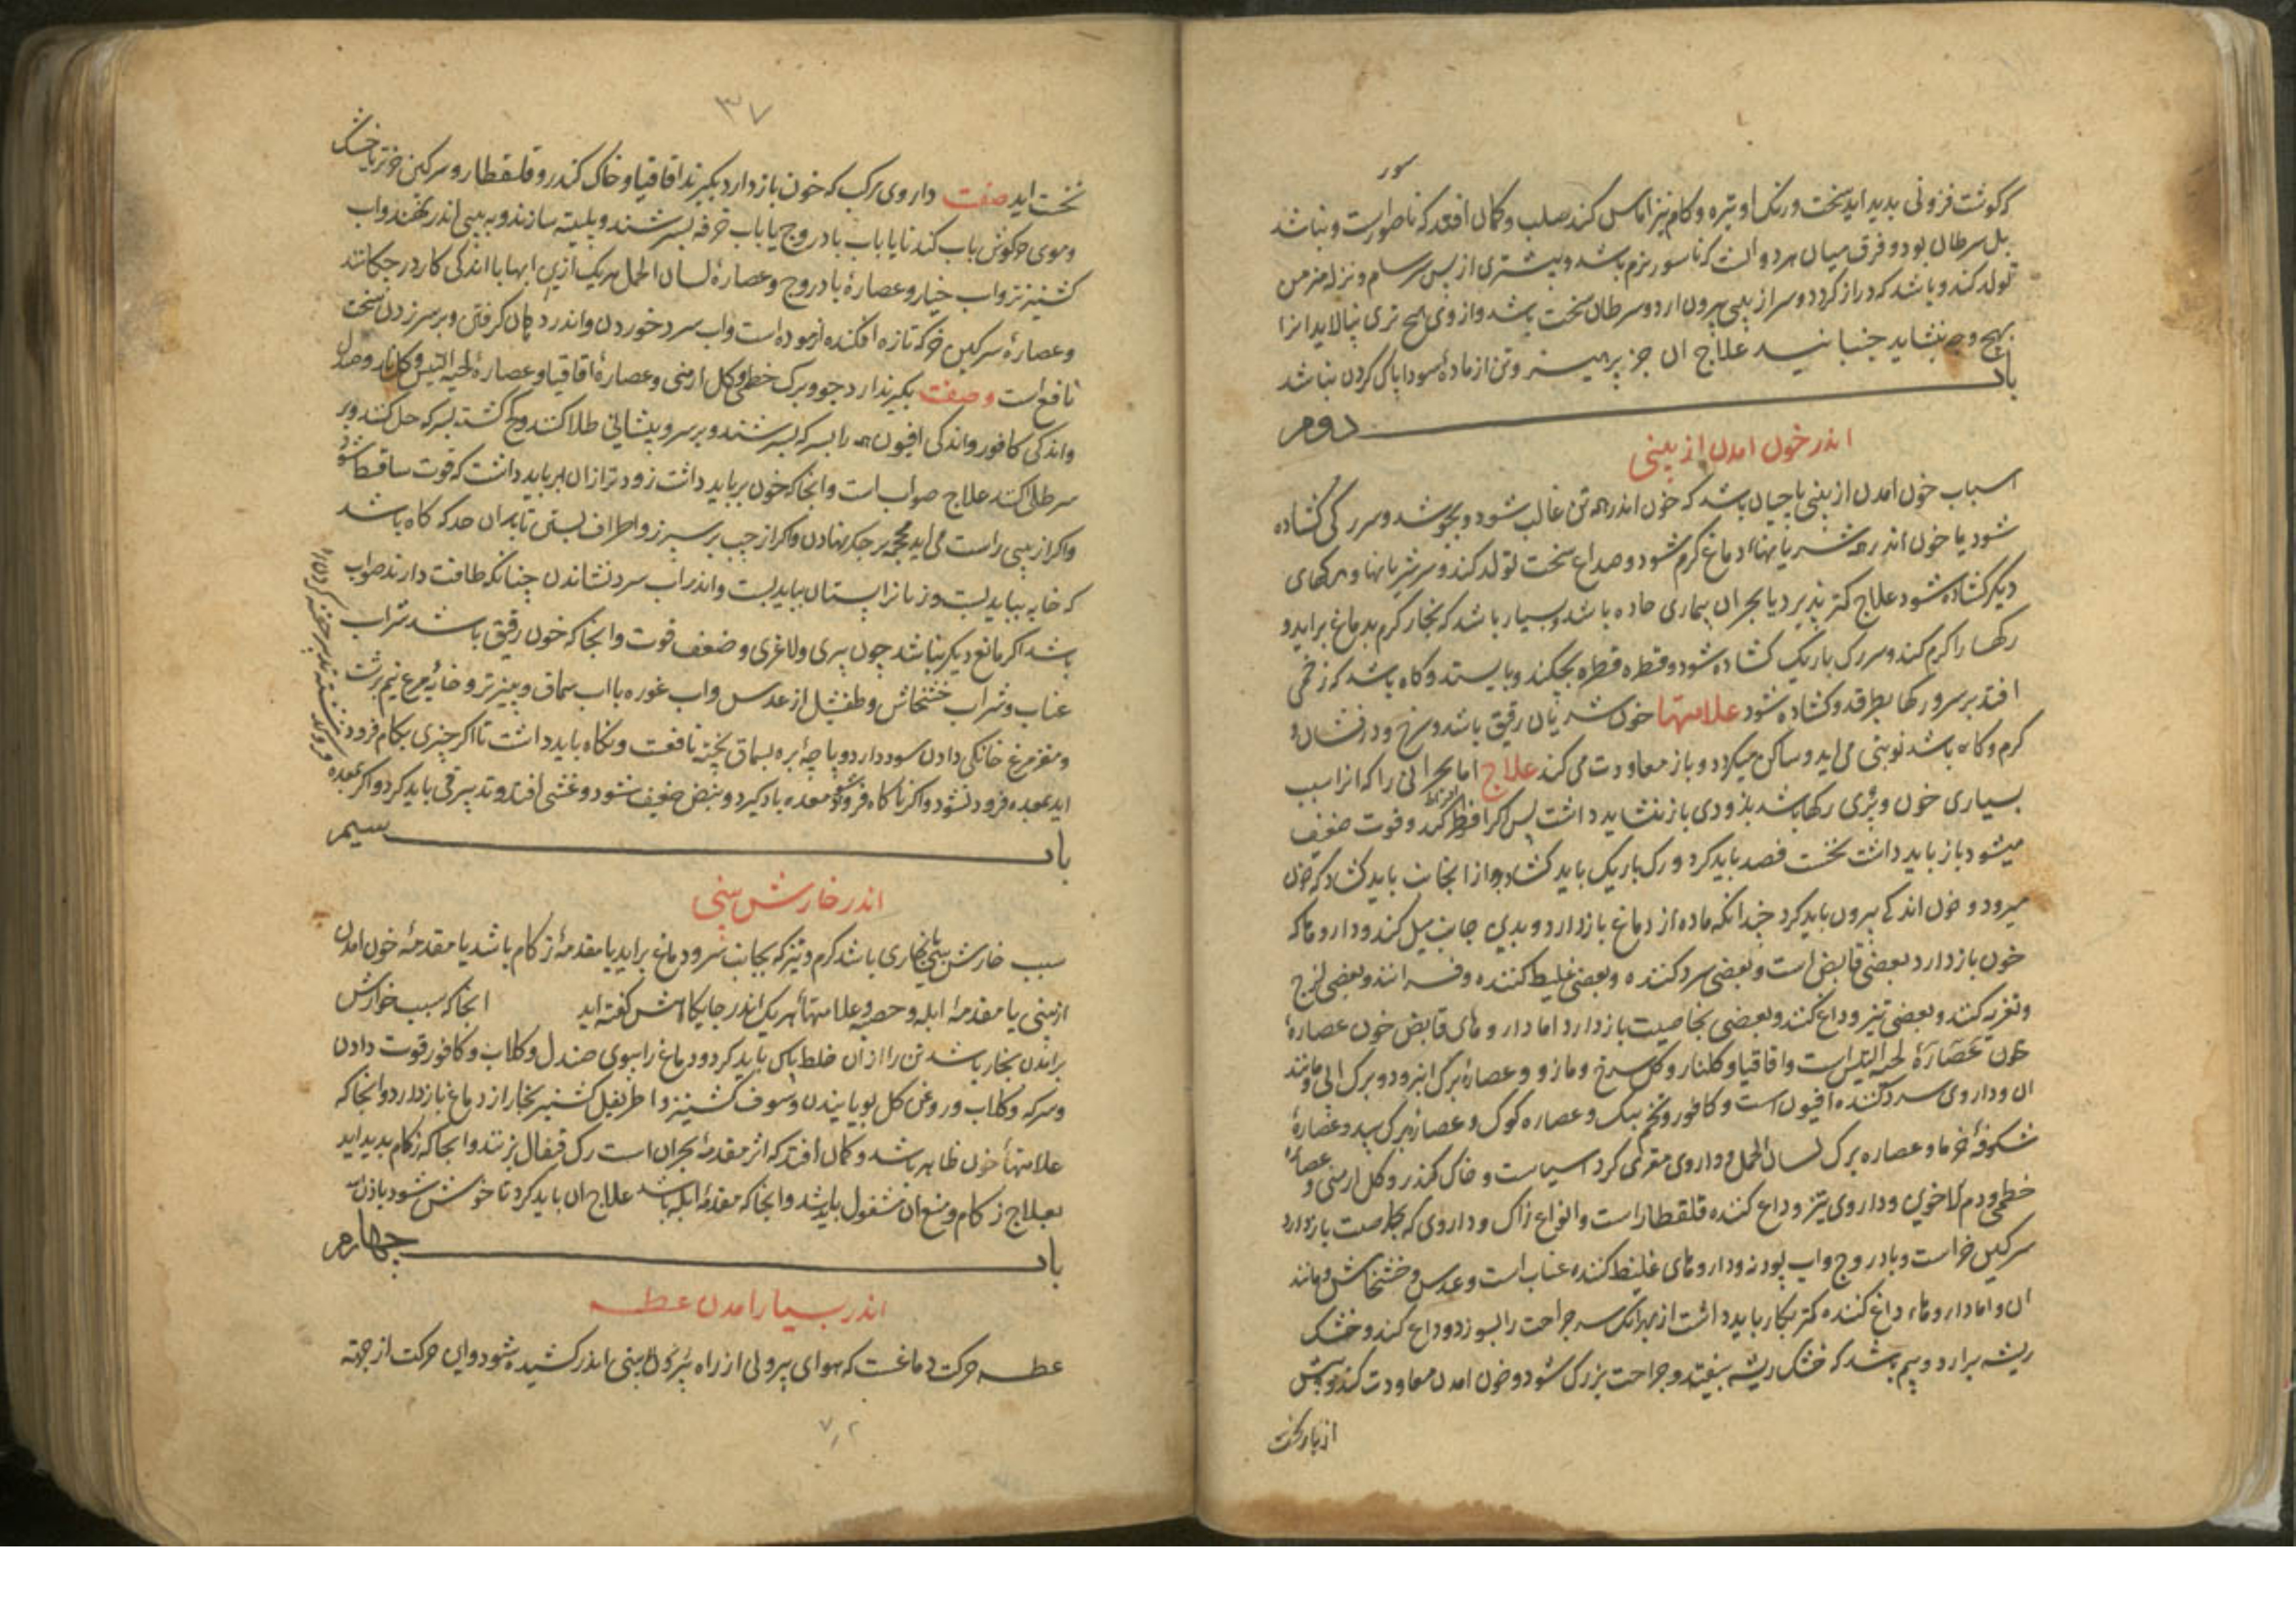 که گوشت فزونی بدید اید سخت و رنگ او تیره و کام نیز اماس کند صلب و کمان افتد که ناصور است و نباشد
بل سرطان بود و فرق میان هر دو انست که ناسور نرم باشد و بیشتری از پس سرسام و نزله مزمن
تولد کند و باشد که دراز گردد و سر از بینی بیرون ارد و سرطان سخت باشد و از وی هیچ تری نپالاید انرا
بهیچ وجه نشاید جنبانید علاج ان جز پرهیز و تن از مادهٔ سودا پاک کردن نباشد
باب دوم
اندر خون امدن از بینی
اسباب خون امدن از بینی یا چنان باشد که خون اندر همه تن غالب شود و بجوشد و سر رکی کشاده
شود یا خون اندر همه شریانهاء دماغ کرم شود و صداع سخت تولد کند و سر شریانها و رکهای
دیکر کشاده شود علاج کمتر پذیرد یا بحران بیماری حاده باشد و بسیار باشد که بخار کرم بدماغ براید و
رکها را کرم کند و سر رک باریک کشاده شود و قطره قطره بچکد و بایستد و کاه باشد که زخمی
افتد بر سر و رکها بطرقد و کشاده شود علامتها خون شریان رقیق باشد و سرخ و درفشان و
کرم و کاه باشد نوبتی می اید و ساکن میکردد و باز معاودت می کند علاج اما بحرانی را که انرا سبب
بسیاری خون و پری رکها باشد بزودی باز نشاید داشت پس اکر افراط کند و قوت ضعیف
میشود باز باید داشت نخست فصد باید کرد و رک باریک باید کشاد و از انجانب باید کشاد که خون
میرود و خون اندکی بیرون باید کرد چندانکه ماده از دماغ بازدارد و بدین جانب میل کند و داروها که
خون بازدارد بعضی قابض است و بعضی سرد کننده و بعضی غلیظ کننده و فسراننده و بعضی لزج
و تغریه کند و بعضی تیز و داغ کند و بعضی بخاصیت بازدارد اما داروهای قابض خون عصارهٔ
خون عصارهٔ لحیه التیس است و اقاقیا و کلنار و کل سرخ و مازو و عصارهٔ برک انبرود و برک ابی و مانند
ان و داروی سرد کننده افیون است و کافور و تخم بنک و عصاره کوک و عصاره برک بید و عصارهٔ
شکوفهٔ خرما و عصاره برک لسان الحمل و داروی مغری کرد اسیاست و خاک کندر و کل ارمنی و عصارهٔ
خطمی و دم الاخوین و داروی تیز و داغ کننده قلقطار است و انواع زاک و داروی که بخاصیت بازدارد
سرکین خر است و بادروج و اب پودنه و داروهای غلیظ کننده عناب است و عدس و خشخاش و مانند
ان و اما داروهاء داغ کننده کمتر بکار باید داشت از بهر انک سر جراحت را بسوزد و داغ کند و خشک
ریشه برارد و بیم باشد که خشک ریشه بیفتد و جراحت بزرک شود و خون امدن معاودت کند و بیش
از بار نخست
۳۷
نخست اید صفت داروی مرکب که خون بازدارد بکیرند اقاقیا و خاک کندر و قلقطار و سرکین خر تر یا خشک
و موی خرکوش باب کندنا یا باب بادروج یا باب خرفه بسرشند و پلیته سازند و به بینی اندر نهند و اب
کشنیز تر و اب خیار و عصارهٔ بادروج و عصارهٔ لسان الحمل هر یک ازین ابها با اندکی کافور در چکانند
و عصارهٔ سرکین خر که تازه افکنده ازموده است و اب سرد خوردن و اندر دهان کرفتن و بر سر زدن سخت
نافع است وصفت بکیرند ارد جو و برک خطمی و کل ارمنی و عصارهٔ اقاقیا و عصارهٔ لحیه التیس و کلنار و صندل
و اندکی کافور و اندکی افیون همه را بسرکه بسرشند و بر سر و پیشانی طلا کنند و کچ کشته بسرکه حل کنند و بر
سر طلا کنند علاج صواب است و انجا که خون بر باید داشت زودتر از ان بر باید داشت که قوت ساقط شود
و اکر از بینی راست می اید محجمه بر جکر نهادن و اکر از چپ بر سپرز و اطراف بستن تا بدان حد که کاه باشد
که خایه بباید بست و زنانرا پستان بباید بست و اندر اب سرد نشاندن چنانکه طاقت دارند صواب
باشد اکر مانع دیکر نباشد چون پیری و لاغری و ضعف قوت و انجا که خون رقیق باشد شراب
عناب و شراب خشخاش و طفشیل از عدس و اب غوره یا اب سماق و پنیر تر و خایهٔ مرغ نیم برشت
و مغز مرغ خانکی دادن سود دارد و پاچهٔ بره بسماق پخته نافعست و نکاه باید داشت تا اکر چیزی بکام فرود
اید بمعده فرود نشود و اکر ناکاه فروشود معده باد کیرد و نبض ضعیف شود و غشی افتد و تدبیر قی باید کرد و اکر بمعده
باب سیم
اندر خارش بینی
سبب خارش بینی بخاری باشد کرم و تیز که بجانب سر و دماغ براید یا مقدمهٔ زکام باشد یا مقدمهٔ خون امدن
از بینی یا مقدمهٔ ابله و حصبه و علامتهاء هر یک اندر جایکاهش کفته اید انجا که سبب خوارش
برامدن بخار باشد تن را از ان خلط پاک باید کرد و دماغ را ببوی صندل و کلاب و کافور قوت دادن
و سرکه و کلاب و روغن کل بویانیدن و سفوف کشنیز و اطریفل کشنیز بخار از دماغ بازدارد و انجا که
علامتهاء خون ظاهر باشد و کمان افتد که اثر مقدمهٔ بحران است رک قیفال بزنند و انجا که زکام بدید اید
بعلاج زکام و منع ان مشغول باید شد و انجا که مقدمهٔ ابله باشد علاج ان باید کرد تا خوش شود باذن الله
باب چهارم
اندر بسیار امدن عطسه
عطسه حرکت دماغست که هوای بیرونی از راه بینی اندر کشیده شود و این حرکت از جهة
۷۲